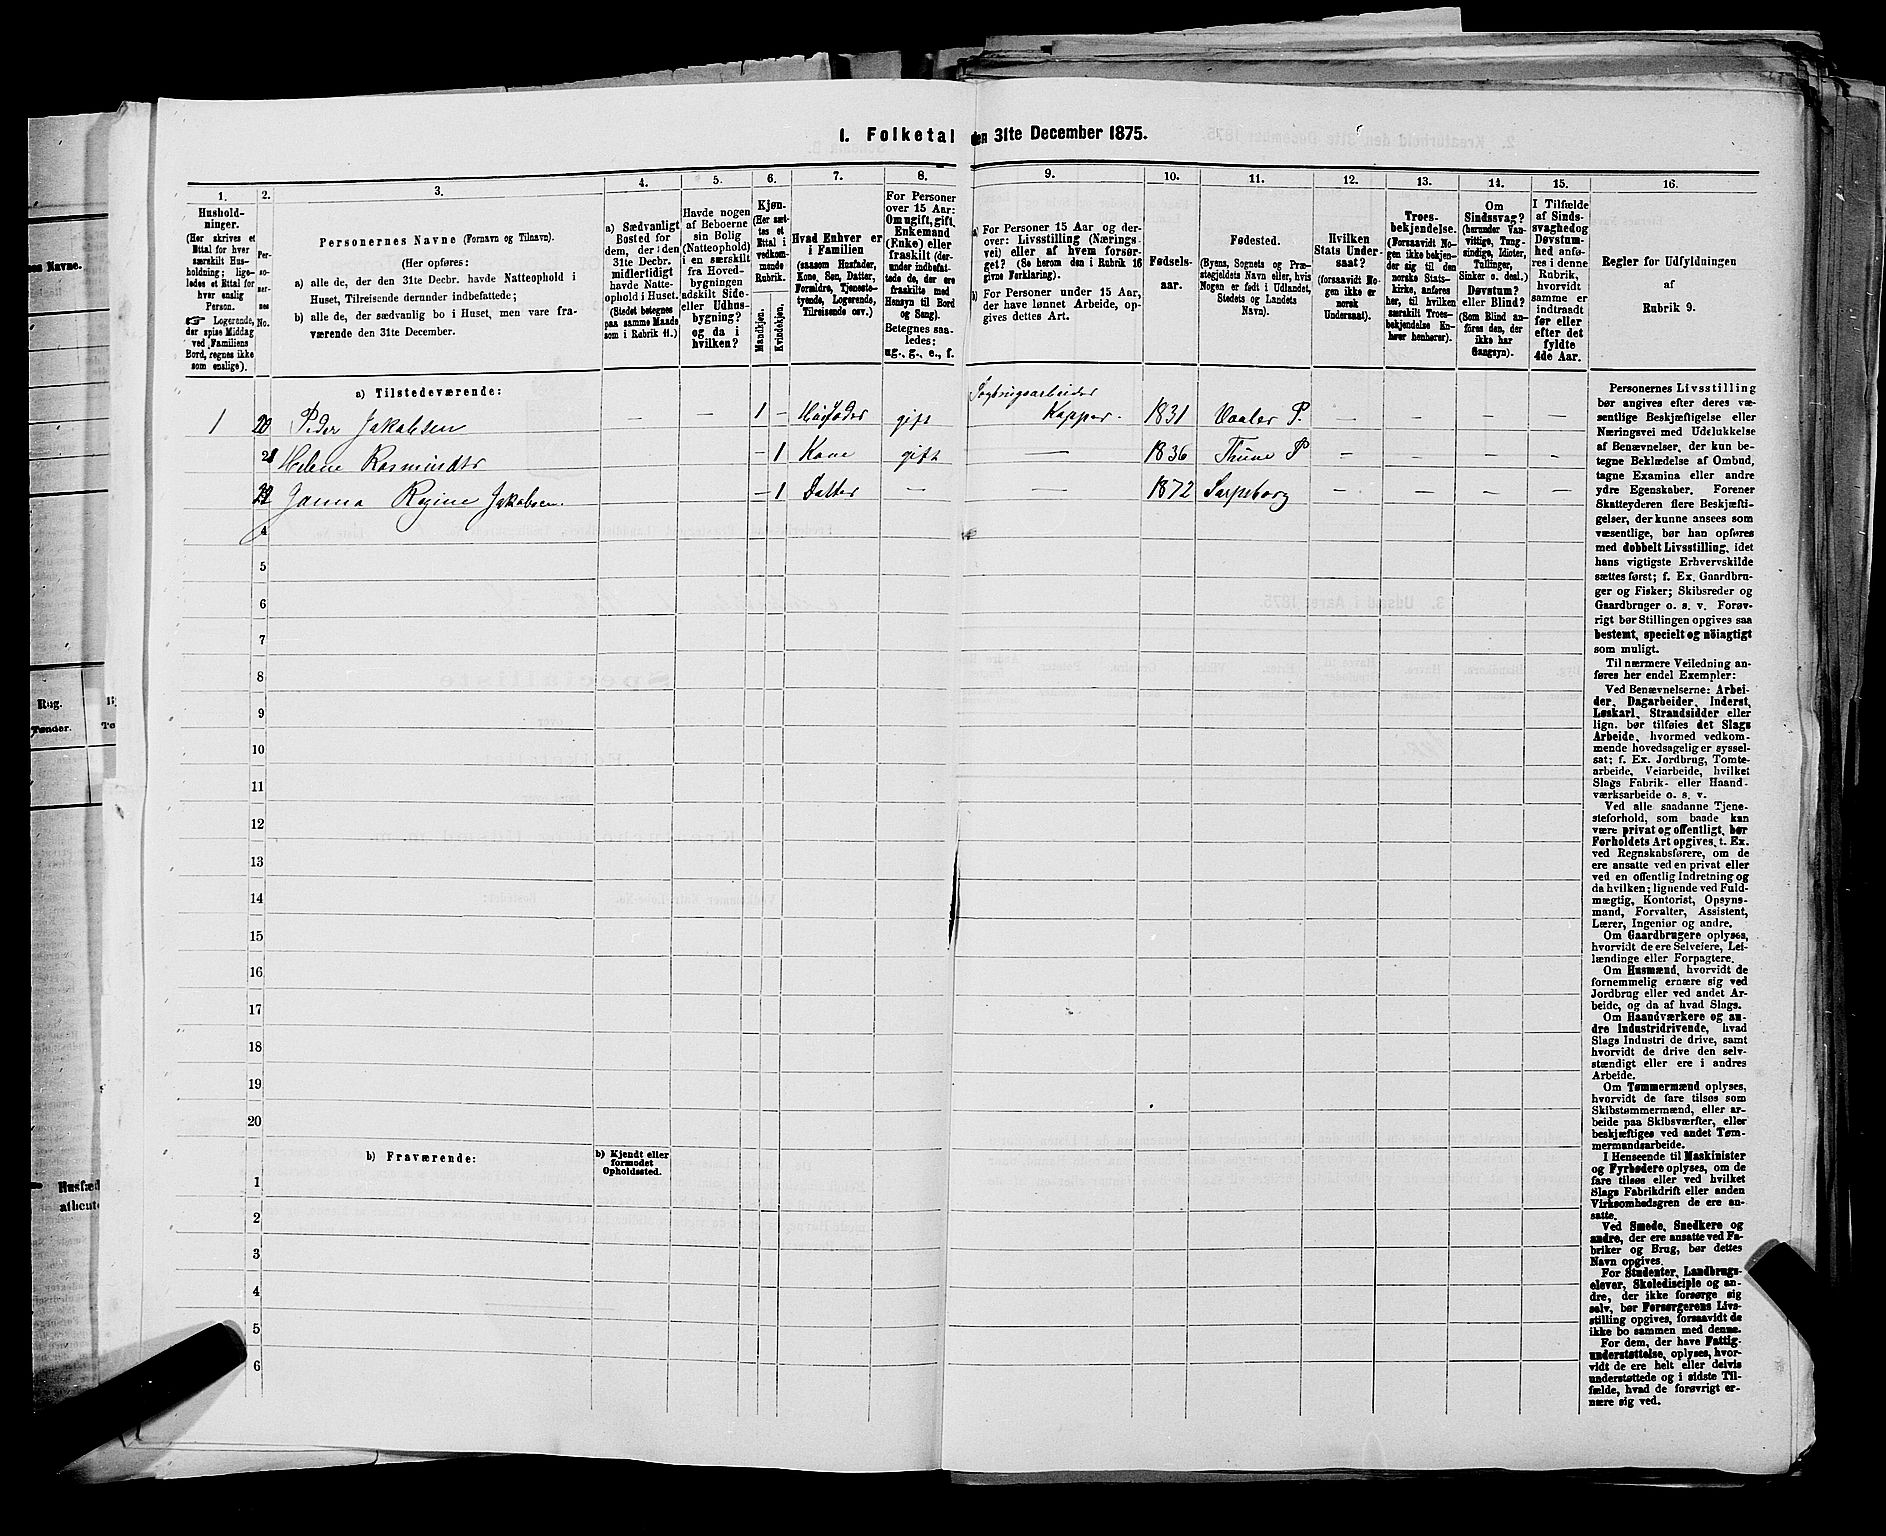 1. Folketal den 31te December 1875.
1. 2. 3. 4. 5. 6. 7. 8. 9. 10. 11. 12. 13. 14. 15. 16.
Hushold-
ninger.
(Her skrives et
Ettal for hver
særskilt Hus-
holdning; lige-
ledes et Ettal for
hver enslig
Person.
☞ Logerende,
der spise Middag
ved Familiens
Bord, regnes ikke
som enslige).
Per-
so-
ner-
nes
No.
Personernes Navne (Fornavn og Tilnavn).
(Her opføres:
a) alle de, der den 31te Decbr. havde Natteophold i
Huset, Tilreisende derunder indbefattede;
b) alle de, der sædvanlig bo i Huset, men vare fra-
værende den 31te December.
a) Sædvanligt
Bosted for
dem, der i den
31te Decbr.
midlertidigt
havde Natte-
ophold i Huset.
(Stedet betegnes
paa samme Maade
som i Rubrik 11.)
Havde nogen
af Beboerne
sin Bolig
(Natteophold)
i en særskilt
fra Hoved-
bygningen
adskilt Side-
eller Udhus-
bygning?
og da i
hvilken?
Kjøn.
(Her sæt-
tes et
Ettal i
vedkom-
mende
Rubrik.
Mandkjøn.
Kvindekjøn.
Hvad Enhver er
i Familien
(saasom Husfader,
Kone, Søn, Datter,
Forældre, Tjeneste-
tyende, Logerende,
Tilreisende osv.)
For Personer
over 15 Aar:
Om ugift, gift,
Enkemand
(Enke) eller
fraskilt (der-
under indbefat-
tede de, der ere
fraskilte med
Hensyn til Bord
og Seng).
Betegnes saa-
ledes:
ug., g., e., f.
a) For Personer 15 Aar og der-
over: Livsstilling (Nærings-
vei) eller af hvem forsør-
get? (Se herom den i Rubrik 16
givne Forklaring).
b) For Personer under 15 Aar,
der have lønnet Arbeide, op-
gives dettes Art.
Fødsels-
aar.
Fødested.
(Byens, Sognets og Præ-
stegjeldets Navn eller, hvis
Nogen er født i Udlandet,
Stedets og Landets
Navn).
Hvilken
Stats Under-
saat?
(forsaavidt No-
gen ikke er
norsk
Undersaat).
Troes-
bekjendelse.
(Forsaavidt No-
gen ikke bekjen-
der sig til den
norske Stats-
kirke, anføres
her, til hvilken
særskilt Troes-
bekjendelse En-
hver henhører).
Om
Sindssvag?
(herunder Van-
vittige, Tung-
sindige, Idioter,
Tullinger,
Sinker o. desl.)
Døvstum?
eller Blind?
(Som Blind an-
føres den, der
ikke har
Gangsyn).
I Tilfælde
af Sinds-
svaghed og
Døvstum-
hed anfø-
res i denne
Rubrik,
hvorvidt
samme er
indtraadt
før eller
efter det
fyldte
4de Aar.
Regler for Udfyldningen
af
Rubrik 9.
a) Tilstedeværende:
Sagbrugsarbeider
1 20 Peder Jakobsen — — 1 – Husfader gift Kapper. 1831 Vaaler P. — — — —
21 Helene Rasmindtr – 1 Kone gift — 1836 Thune P — — — —
22 Janna Regine Jakobsen. – 1 Datter — — 1872 Sarpsborg — — — —
4
5
6
7
8
9
10
11
12
13
14
15
16
17
18
19
20
b) Fraværende:
b) Kjendt eller
formodet
Opholdssted.
1
2
3
4
5
6
Personernes Livsstilling
bør angives efter deres væ-
sentlige Beskjæftigelse eller
Næringsvei med Udelukkelse
af Benævnelser, der kun be-
tegne Beklædelse af Ombud,
tagne Examina eller andre
ydre Egenskaber. Forener
Skatteyderen flere Beskjæfti-
gelser, der kunne ansees som
væsentlige, bør han opføres
med dobbelt Livsstilling, idet
hans vigtigste Erhvervskilde
sættes først; f. Ex. Gaardbru-
ger og Fisker; Skibsreder og
Gaardbruger o. s. v. Forøv-
rigt bør Stillingen opgives saa
bestemt, specielt og nöiagtigt
som muligt.
Til nærmere Veiledning an-
føres her endel Exempler:
Ved Benævnelserne: Arbei-
der, Dagarbeider, Inderst,
Løskarl, Strandsidder eller
lign. bør tilføies det Slags
Arbeide, hvormed vedkom-
mende hovedsagelig er syssel-
sat; f. Ex. Jordbrug, Tomte-
arbeide, Veiarbeide, hvilket
Slags Fabrik- eller Haand-
værksarbeide o. s. v.
Ved alle saadanne Tjene-
steforhold, som baade kan
være privat og offentligt, bør
Forholdets Art opgives, t. Ex.
ved Regnskabsførere, om de
ere ansatte ved en privat eller
ved en offentlig Indretning og
da hvilken; lignende ved Fuld-
mægtig, Kontorist, Opsyns-
mand, Forvalter, Assistent,
Lærer, Ingeniør og andre.
Om Gaardbrugere oplyses,
hvorvidt de ere Selveiere, Lei-
lændinge eller Forpagtere.
Om Husmænd, hvorvidt de
fornemmelig ernære sig ved
Jordbrug eller ved andet Ar-
beide, og da af hvad Slags.
Om Haandværkere og an-
dre Industridrivende, hvad
Slags Industri de drive, samt
hvorvidt de drive den selv-
stændigt eller ere i andres
Arbeide.
Om Tømmermænd oplyses,
hvorvidt de fare tilsøs som
Skibstømmermænd, eller ar-
beide paa Skibsværfter, eller
beskjæftiges ved andet Tøm-
mermandsarbeide.
I Henseende til Maskinister
og Fyrbødere oplyses, om de
fare tilsøs eller ved hvilket
Slags Fabrikdrift eller anden
Virksomhedsgren de ere an-
satte.
Ved Smede, Snedkere og
andre, der ere ansatte ved Fa-
briker og Brug, bør dettes
Navn opgives.
For Studenter, Landbrugs-
elever, Skoledisciple og an-
dre, der ikke forsørge sig
selv, bør Forsørgerens Livs-
stilling opgives, forsaavidt de
ikke bo sammen med denne.
For dem, der have Fattig-
understøttelse, oplyses, hvor-
vidt de ere helt eller delvis
understøttede og i sidste Til-
fælde, hvad de forøvrigt er-
nære sig ved.
Rug.
Tønder.